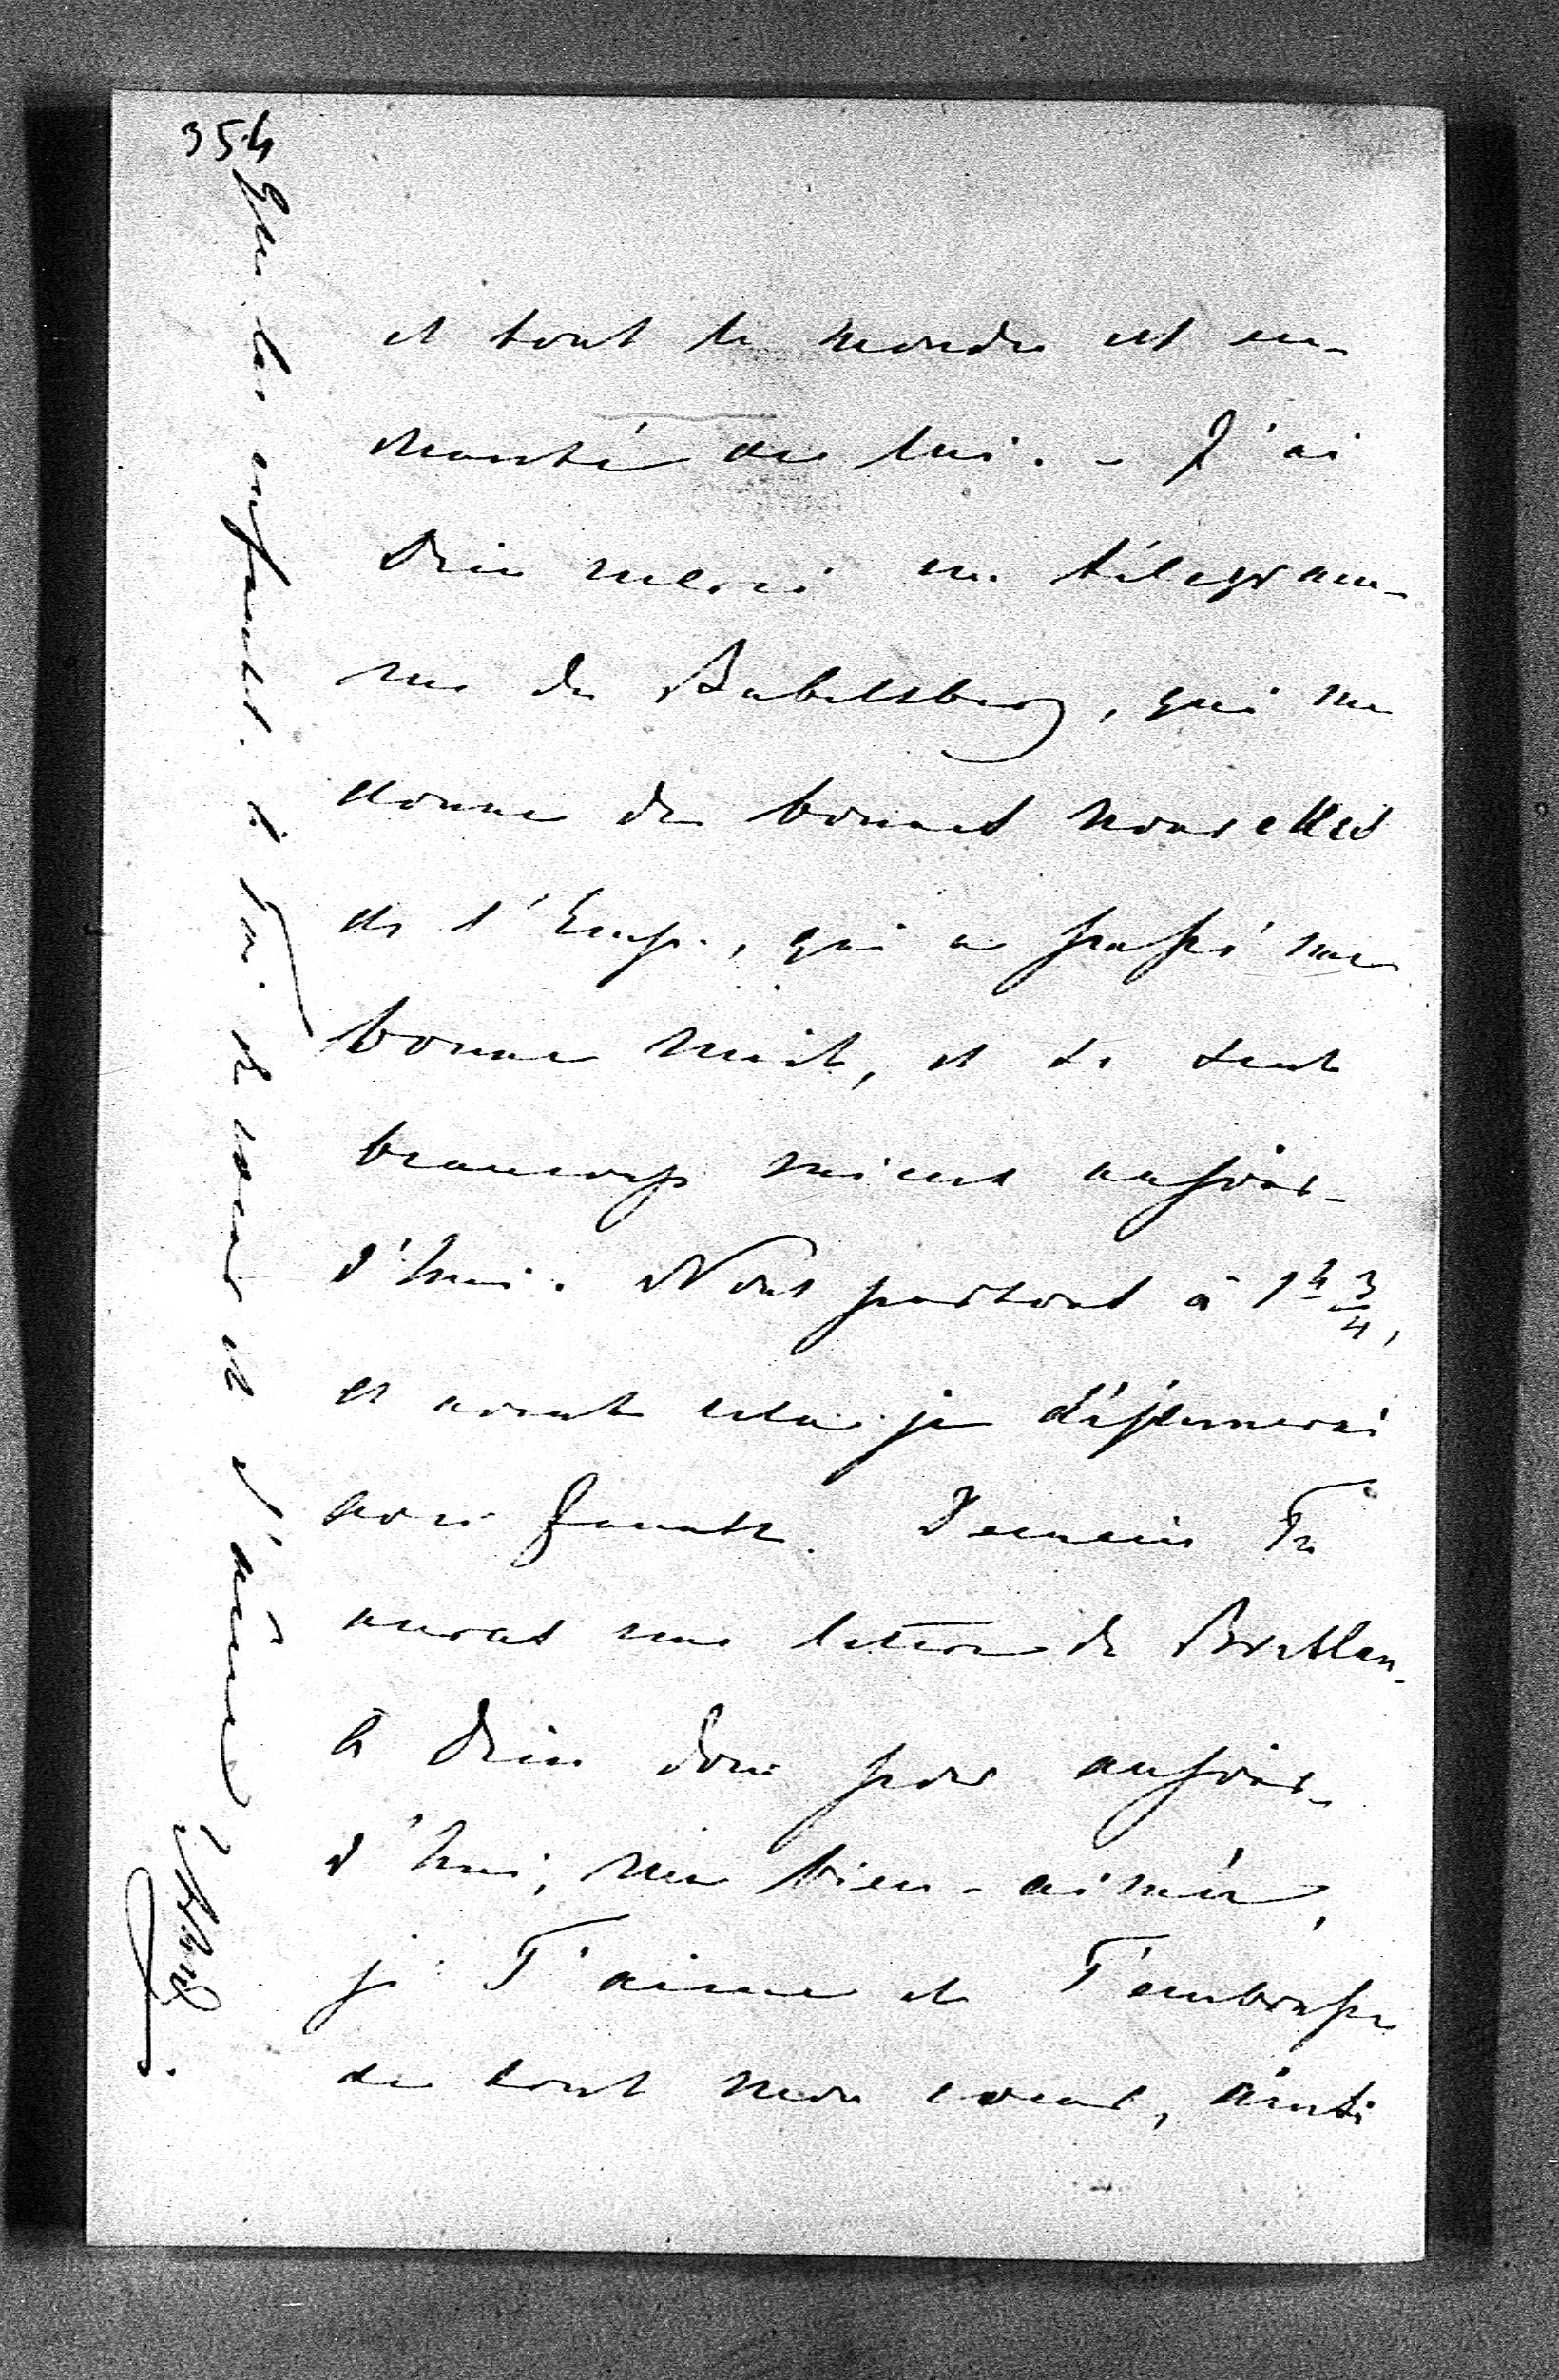 354
et tout le monde est en-
chanté de lui. – J'ai
Dieu merci un télégram-
me de Babelsberg, qui me
donne de bonnes nouvelles
de l'Emp., qui a passé une
bonne nuit, et se sent
beaucoup mieux aujour-
d'hui. Nous partons à 1 h 3/4,
et avant cela je déjeunerai
avec Fanath. Demain Tu
auras une lettre de Breslau.
à Dieu donc pour aujour-
d'hui, ma bien-aimée,
je T'aime et T'embrasse
de tout mon coeur, ainsi
que les enfants. à Toi de coeur et d'âme